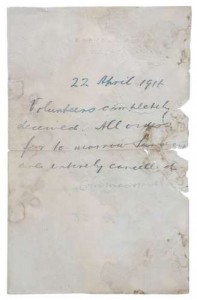 22 April 1916
Volunteers completely
deceived. All orders
for to morrow Sunday
are entirely cancelled